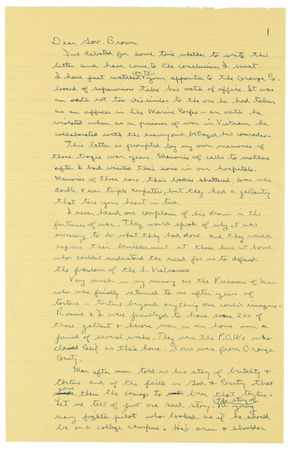 1
Dear Gov. Brown
I've debated for some time whether to write this
letter and have come to the conclusion I must.
I have just watched on TV your appointee to the Orange Co.
board of supervisors take his oath of office. It was
an oath not too dissimilar to the one he had taken
as an officer in the Marine Corps – an oath he
violated when as a prisoner of war in Vietnam he
collaborated with the enemy and betrayed his comrades.
This letter is prompted by my own memories of
those tragic war years. Memories of calls to mothers
after I had visited their sons in our hospitals.
Memories of those sons, their bodies shattered, some were
double & even triple amputees but they had a gallantry
that tore your heart in two.
I never heard one complain of his draw in the
fortunes of war. They would speak of why it was
necessary to do what they had done and they would
express their bewilderment at those here at home
who couldn't understand the need for us to defend
the freedom of the S. Vietnamese.
Very much in my memory are the Prisoners of War
who were finally returned to us after years of
torture – torture beyond anything we could imagine.
Nancy & I were privileged to have some 200 of
these gallant & heroic men in our home over a
period of several weeks. They were the P.O.W.s who
claimed Calif. as their home. Some were from Orange
County.
Man after man told us his story of brutality &
torture and of the faith in God & Country that
gave them the courage to bear that torture.
Let me tell of just one such story. The story of
navy fighter pilot who looked as if he should
be on a college campus. His arm & shoulder